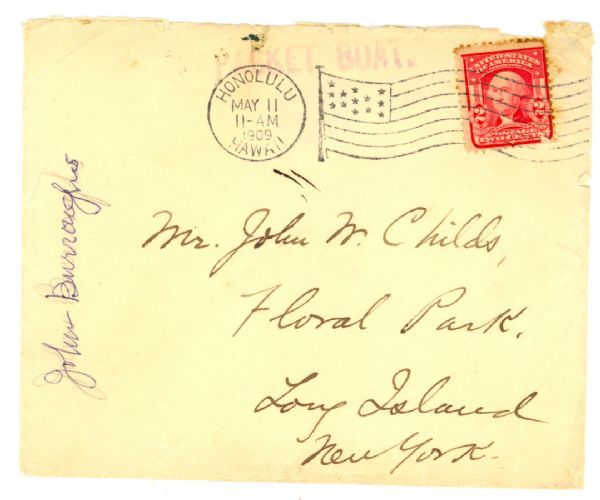 PACKET BOAT.
HONOLULU
MAY 11
11-AM
1909
HAWAII
UNITED STATES
OF AMERICA
2 2
POSTAGE
TWO CENTS
Mr. John W. Childs,
Floral Park.
Long Island
New York.
John Burroughs